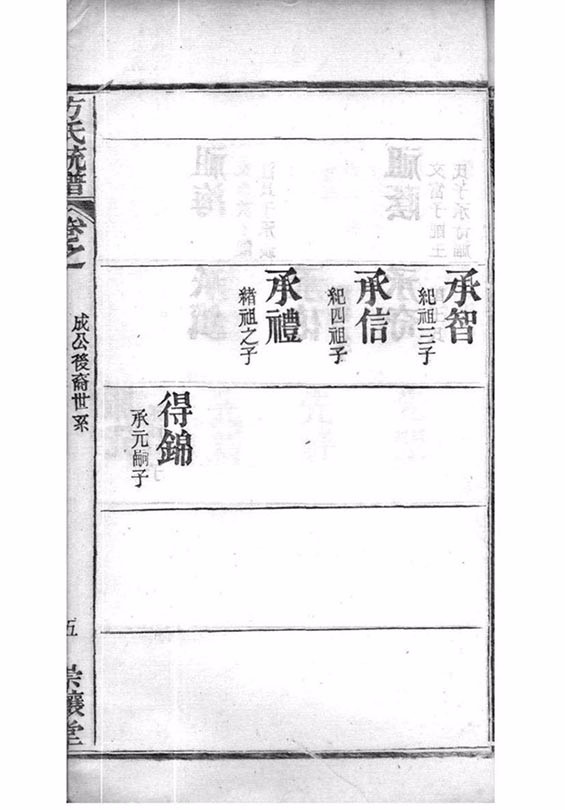 承智
紀祖三子
承信
紀四祖子
承禮
緒祖之子
得錦
承元嗣子
方氏統譜
卷之一
成公後裔世系
五
堂